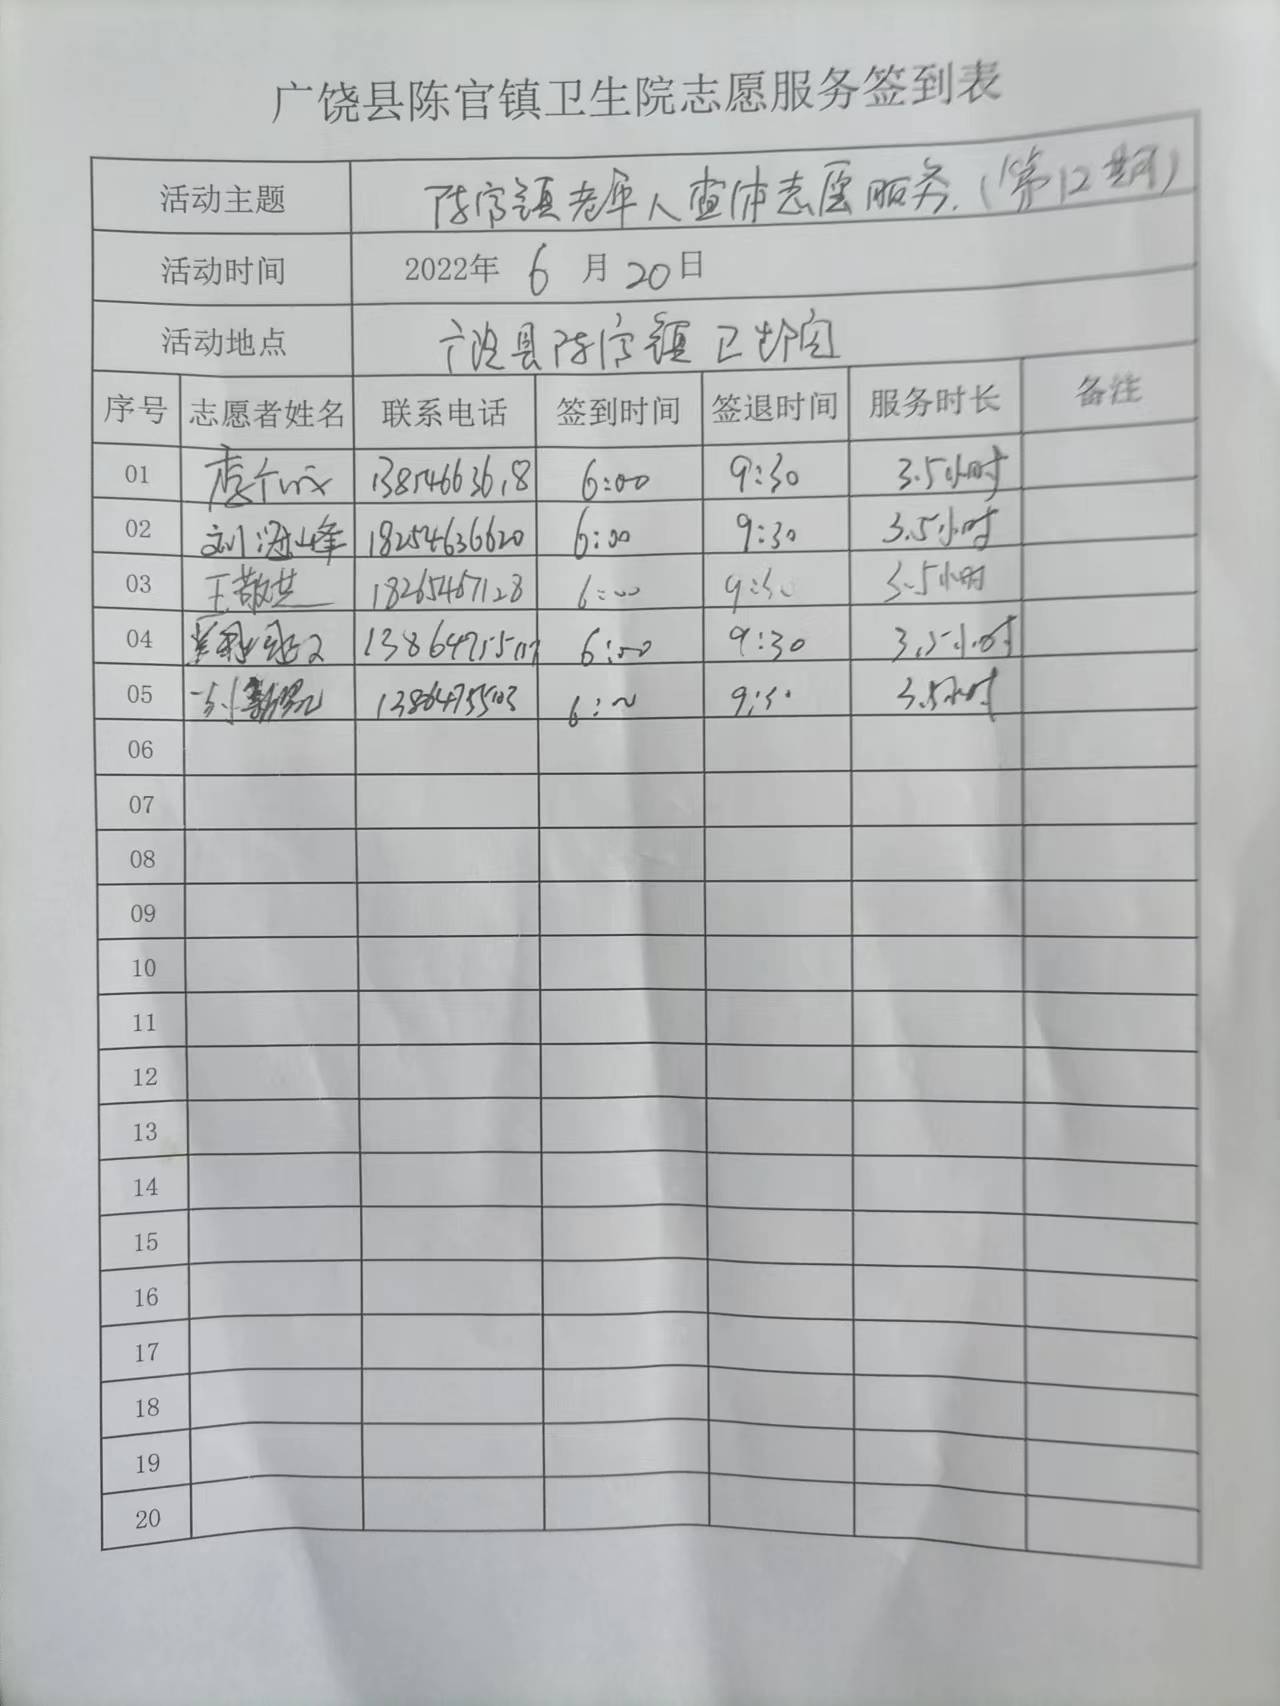 广饶县陈官镇卫生院志愿服务签到表
活动主题 陈官镇老年人查体志愿服务.(第12期)
活动时间 2022年 6 月 20日
活动地点 广饶县陈官镇卫生院
序号 志愿者姓名 联系电话 签到时间 签退时间 服务时长 备注
01 6:00 9:30 3.5小时
02 刘海峰 18254636620 6:00 9:30 3.5小时
03 王敬芸 18265467128 6:00 9:30 3.5小时
04 6:00 9:30 3.5小时
05 13864755103 6:00 9:30 3.5小时
06
07
08
09
10
11
12
13
14
15
16
17
18
19
20